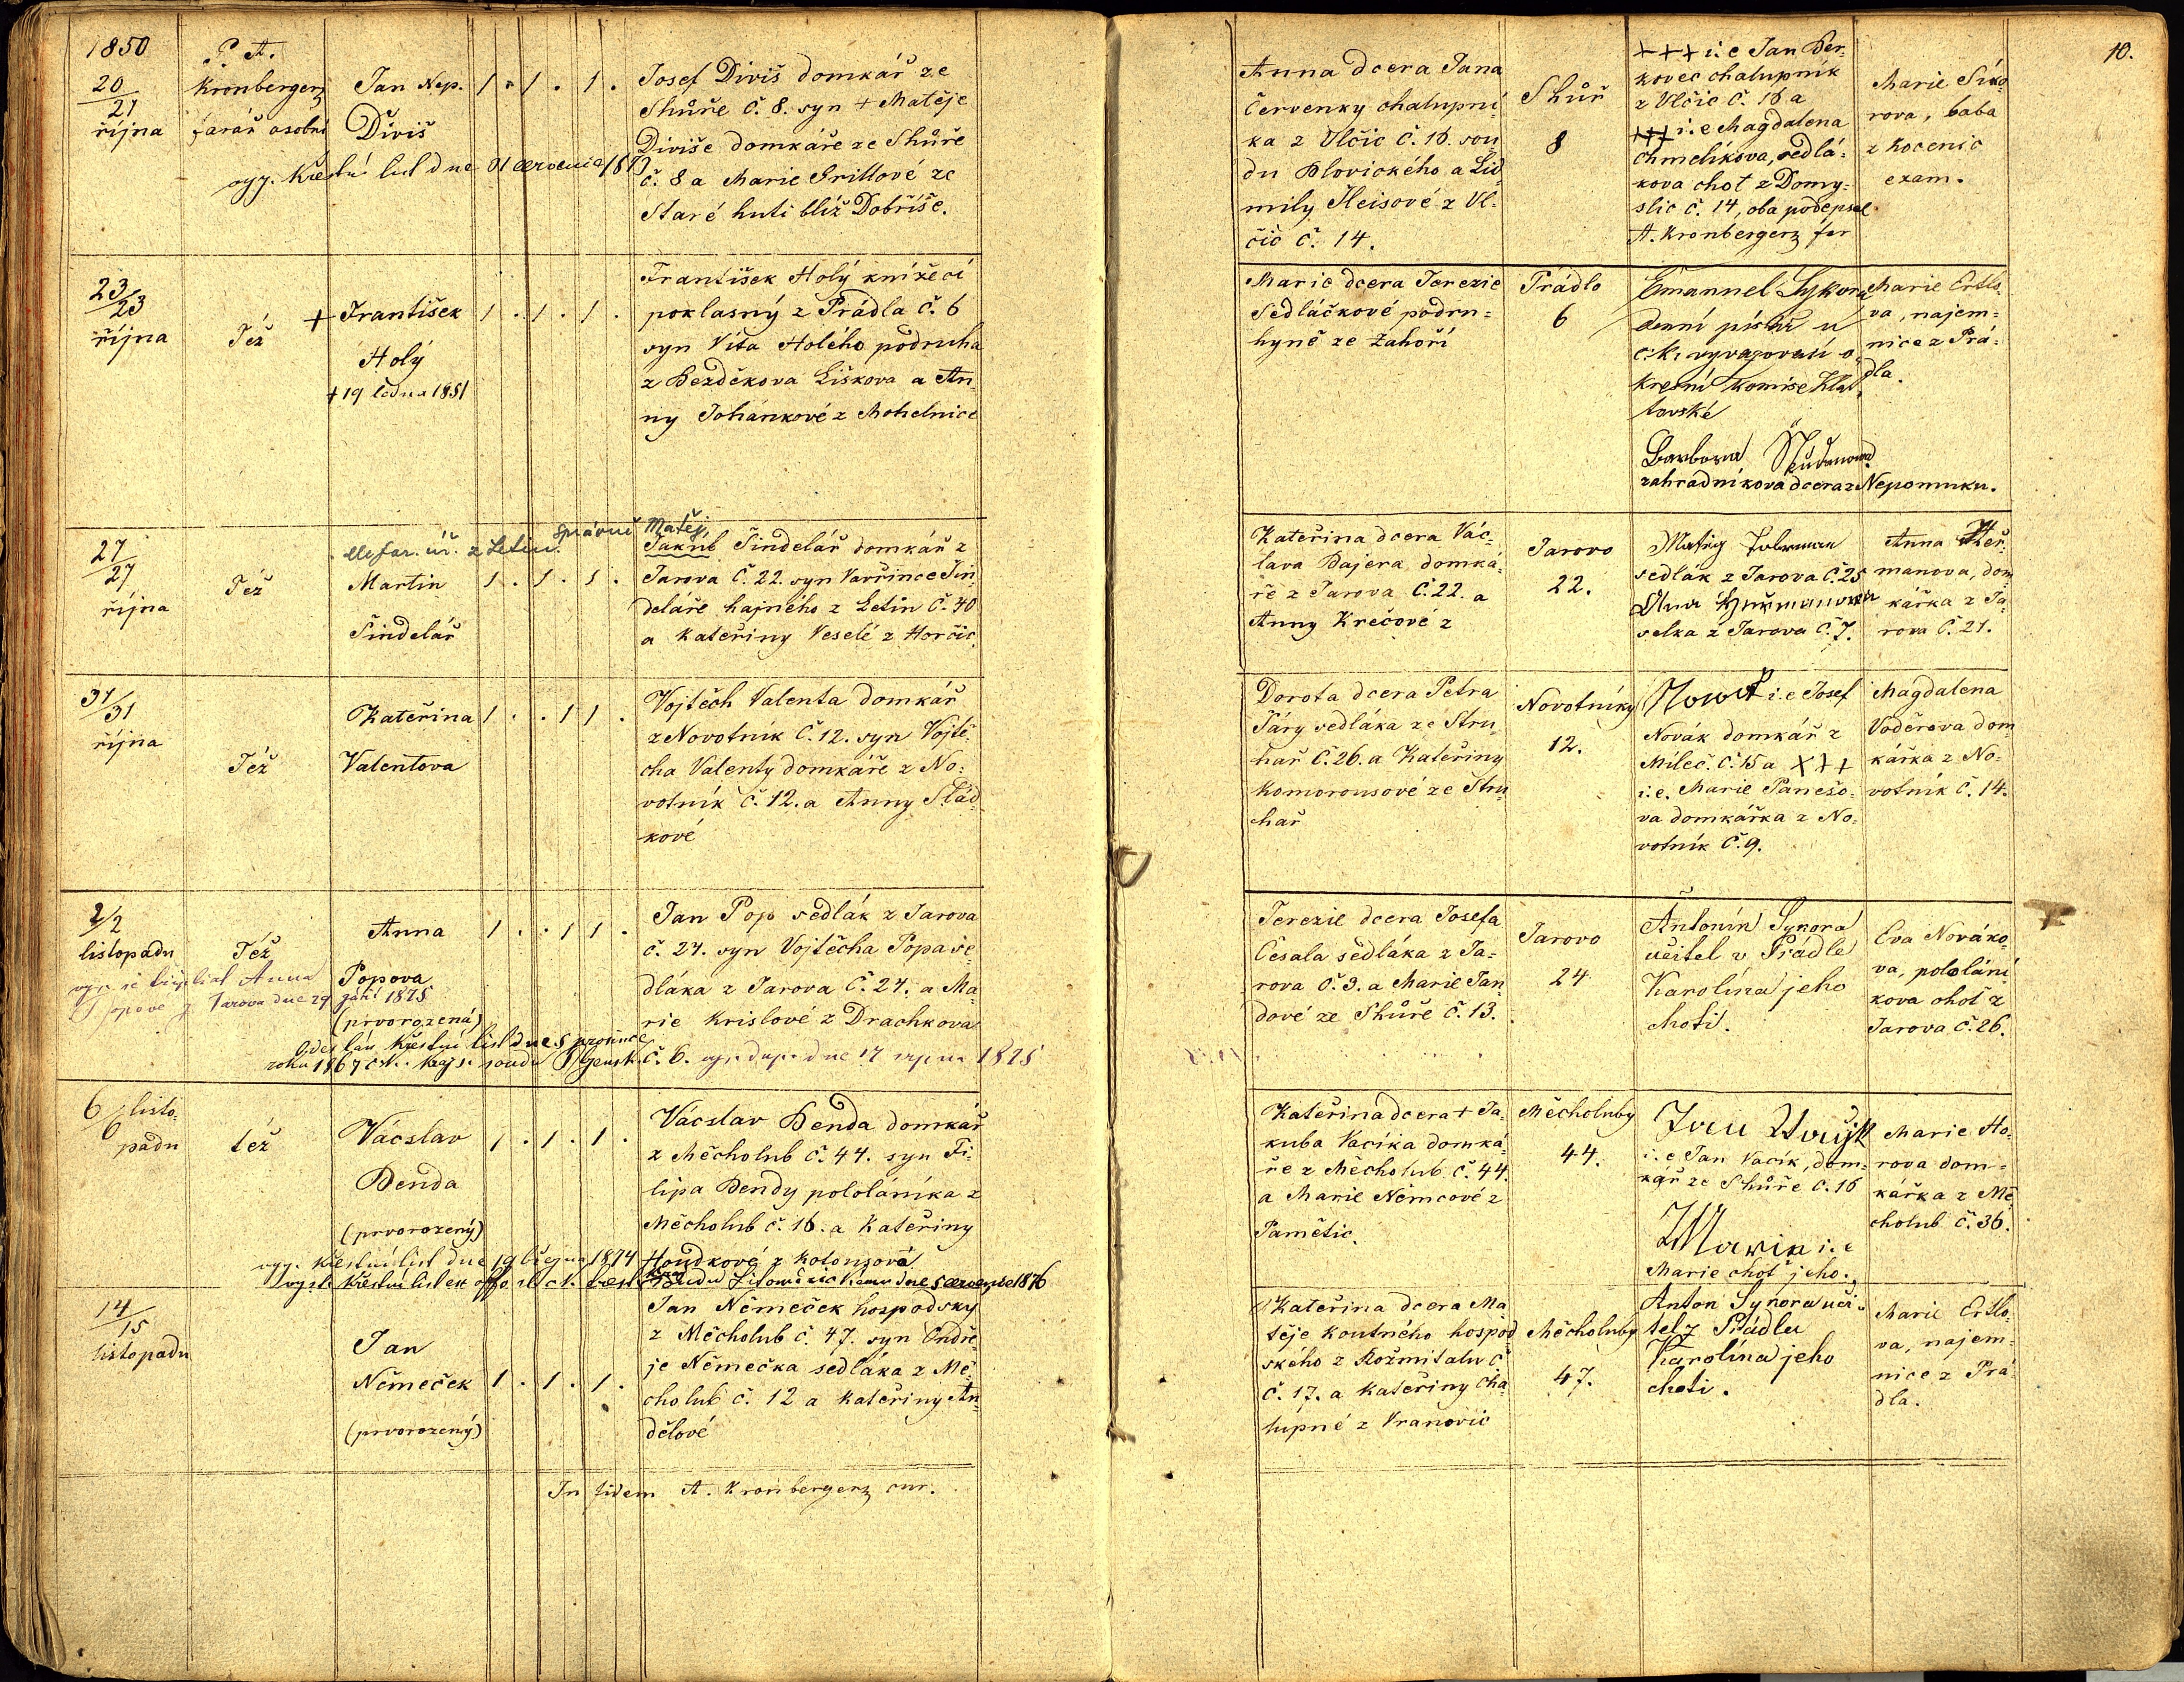 1850
20/21
října
P. A.
Kronberger
farář osobní
Jan Nep.
Diviš
1 . 1 . 1 .
Josef Diviš domkář ze
Shůře č. 8. syn + Matěje
Diviše domkáře ze Shůře
č. 8 a Marie Grillové ze
Staré huti blíž Dobříše.
vyg. Křestní list dne
23/23
října
Též
+ František
Holý
+ 19 ledna 1851
1 . 1 . 1 .
František Holý knížecí
poklasný z Prádla č. 6
syn Víta Holého podruha
z Bezděkova Liškova a An-
ny Johánkové z Mohelnice
27/27
října
Též
z Letin.
Martin
Šindelář
1 . 1 . 1 .
správně Matěj
Jakub Šindelář domkář z
Jarova č. 22. syn Vavřince Šin-
deláře hajného z Letin č. 40
a Kateřiny Veselé z Horčic
31/31
října
Též
Kateřina
Valentova
1 . . 1 1 .
Vojtěch Valenta domkář
z Novotník č. 12. syn Vojtě-
cha Valenty domkáře z No-
votník č. 12. a Anny Slád-
kové
2/2
listopadu
Též
Anna
Popova
(prvorozená)
1 . . 1 1 .
Jan Pop sedlák z Jarova
č. 24. syn Vojtěcha Popa se-
dláka z Jarova č. 24. a Ma-
rie Krislové z Drachkova
č. 6.
Anna
Popové z Jarova dne 29 září 1875
Odeslán křestní list dne 5 prosince
roku 1867 soudu
dne 17 srpna 1875
6/6 listo-
padu
též
Vácslav
Benda
(prvorozený)
1 . 1 . 1 .
Vácslav Benda domkář
z Měcholub č. 44. syn Fi-
lipa Bendy pololáníka z
Měcholub č. 16. a Kateřiny
Houdkové z Kotousova
vyg. křestní list dne 19 března 1874
křestní list ex offo
14/15
listopadu
Jan
Němeček
(prvorozený)
1 . 1 . 1 .
Jan Němeček hospodský
z Měcholub č. 47. syn Ondře-
je Němečka sedláka z Mě-
cholub č. 12 a Kateřiny An-
dělové
In fidem A. Kronberger cur.
10.
Anna dcera Jana
Červenky chalupní-
ka z Vlčic č. 16. sou-
du Blovického a Lid-
mily Heisové z Vl-
čic č. 14.
Shůř
8
+++ i: e Jan Ber-
kovec chalupník
z Vlčic č. 16 a
+++ i: e Magdalena
Chmelíkova, sedlá-
kova choť z Domy-
slic č. 14, oba podepsal
A. Kronberger far
Marie Síko-
rova, baba
z Kocenic
exam.
Marie dcera Terezie
Sedláčkové podru-
hyně ze Zahoří
Prádlo
6
Emanuel Sykora
denní písař u
c: k: vyvazovací o-
kresní komise Klat-
tovské
Barbora
zahradníkova dcera z Nepomuku.
Marie Ertlo-
va, najem-
nice z Prá-
dla.
Kateřina dcera Vác-
lava Bajera domká-
ře z Jarova č. 22. a
Anny Krečové z
Jarovo
22.
Matěj
sedlák z Jarova č. 25
selka z Jarova č. 7.
Anna Heř-
manova, dom-
kářka z Ja-
rova č. 21.
Dorota dcera Petra
Páry sedláka ze Stru-
hař č. 26. a Kateřiny
Komorousové ze Stru-
hař
Novotníky
12.
i: e Josef
Novák domkář z
Mileč. č. 15 a +++
i: e. Marie Panešo-
va domkářka z No-
votník č. 9.
Magdalena
Voděrova dom
kářka z No-
votník č. 14.
Terezie dcera Josefa
Česala sedláka z Ja-
rova č. 3. a Marie Jan-
dové ze Shůře č. 13.
Jarovo
24
Antonín Sykora
učitel v Prádle
Karolína jeho
choti.
Eva Nováko-
va, pololání-
kova choť z
Jarova č. 26.
Kateřina dcera + Ja-
kuba Vacíka domká-
ře z Měcholub č. 44.
a Marie Němcové z
Pamětic.
Měcholuby
44.
i: e Jan Vacík, dom-
kář ze Shůře č. 16
Maria i: e
Marie choť jeho.
Marie Ho-
rova dom-
kářka z Mě-
cholub č. 36.
Kateřina dcera Ma-
těje Koutného hospod-
ského z Rožmitalu č
č. 17. a Kateřiny Cha-
lupné z Vranovic
Měcholuby
47.
Anton Sykora uči-
tel z Prádla
Karolína jeho
choti.
Marie Ertlo-
va, najem-
nice z Prá-
dla.